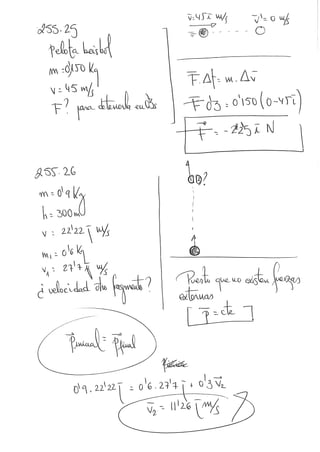 255.25
Pelota beisbol
m = 0'150 Kg
v = 45 m/s
F? para detenerla en
v̄: 45 ī m/s
v̄' = 0 m/s
F̄.Δt = m.Δv̄
F̄ . 0'150 (0-45ī)
F̄ = -225 ī N
255.26
m = 0'9 Kg
h = 300 m
v = 22'22 j̄ m/s
m₁ = 0'6 Kg
v₁ = 27'7 j̄ m/s
¿velocidad otro fragmento?
?
Puesto que no existen fuerzas
externas
p̄ = cte
p̄inicial = p̄final
0'9 . 22'22 j̄ = 0'6 . 27'7 j̄ + 0'3 v̄₂
v̄₂ = 11'26 j̄ m/s